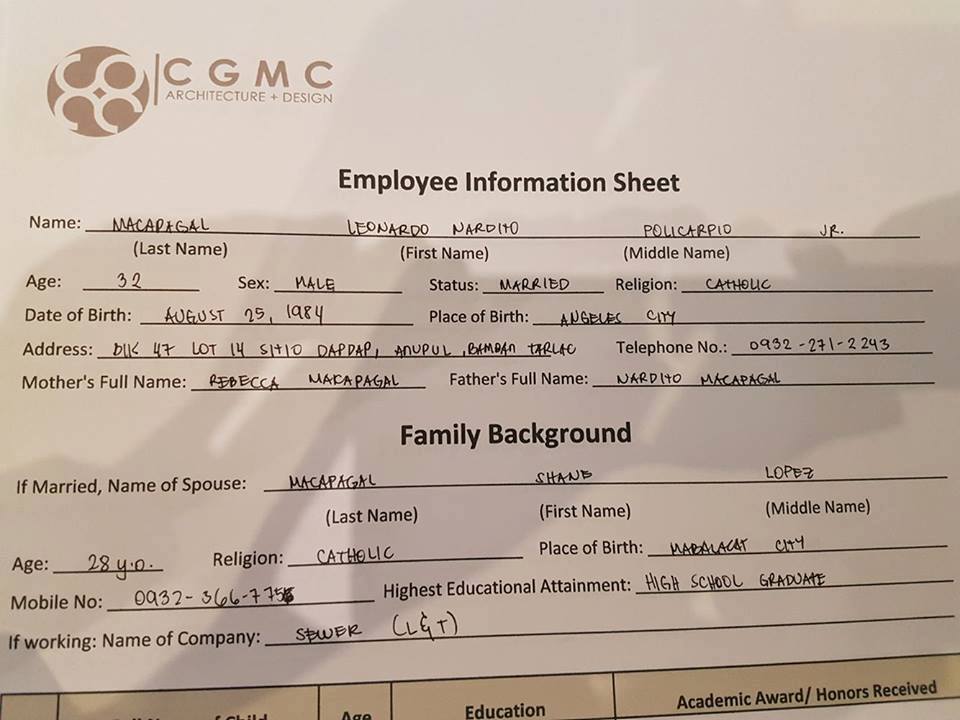 CGMC
ARCHITECTURE + DESIGN
Employee Information Sheet
Name: MACAPAGAL LEONARDO NARDITO POLICARPIO JR.
(Last Name) (First Name) (Middle Name)
Age: 32 Sex: MALE Status: MARRIED Religion: CATHOLIC
Date of Birth: AUGUST 25, 1984 Place of Birth: ANGELES CITY
Address: BLK 47 LOT 14 SITIO DAPDAP, ANUPUL, BAMBAN TARLAC Telephone No.: 0932-271-2243
Mother's Full Name: REBECCA MACAPAGAL Father's Full Name: NARDITO MACAPAGAL
Family Background
If Married, Name of Spouse: MACAPAGAL SHANE LOPEZ
(Last Name) (First Name) (Middle Name)
Age: 28 y.o. Religion: CATHOLIC Place of Birth: MABALACAT CITY
Mobile No: Highest Educational Attainment: HIGH SCHOOL GRADUATE
If working: Name of Company: SEWER (L&T)
Age Education Academic Award/ Honors Received